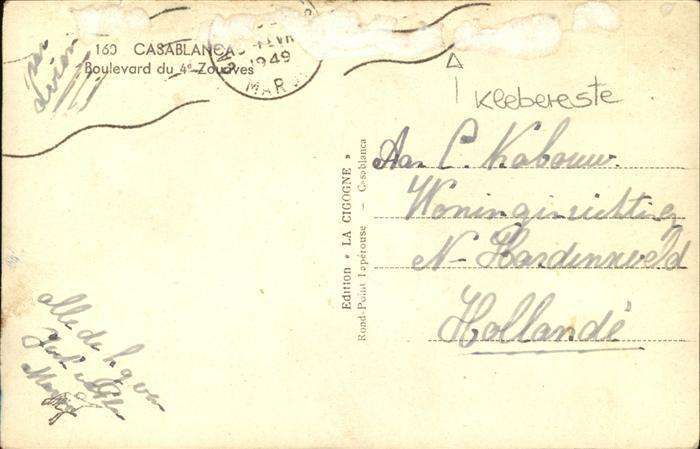 160 CASABLANCA
Boulevard du 4e Zouaves
1949
MAR
Klebereste
Edition « LA CIGOGNE »
Rond-Point Lapérouse - Casablanca
Aan C. Kabouw
Woninginrichting
N- Hardinxveld
Hollande
alle de